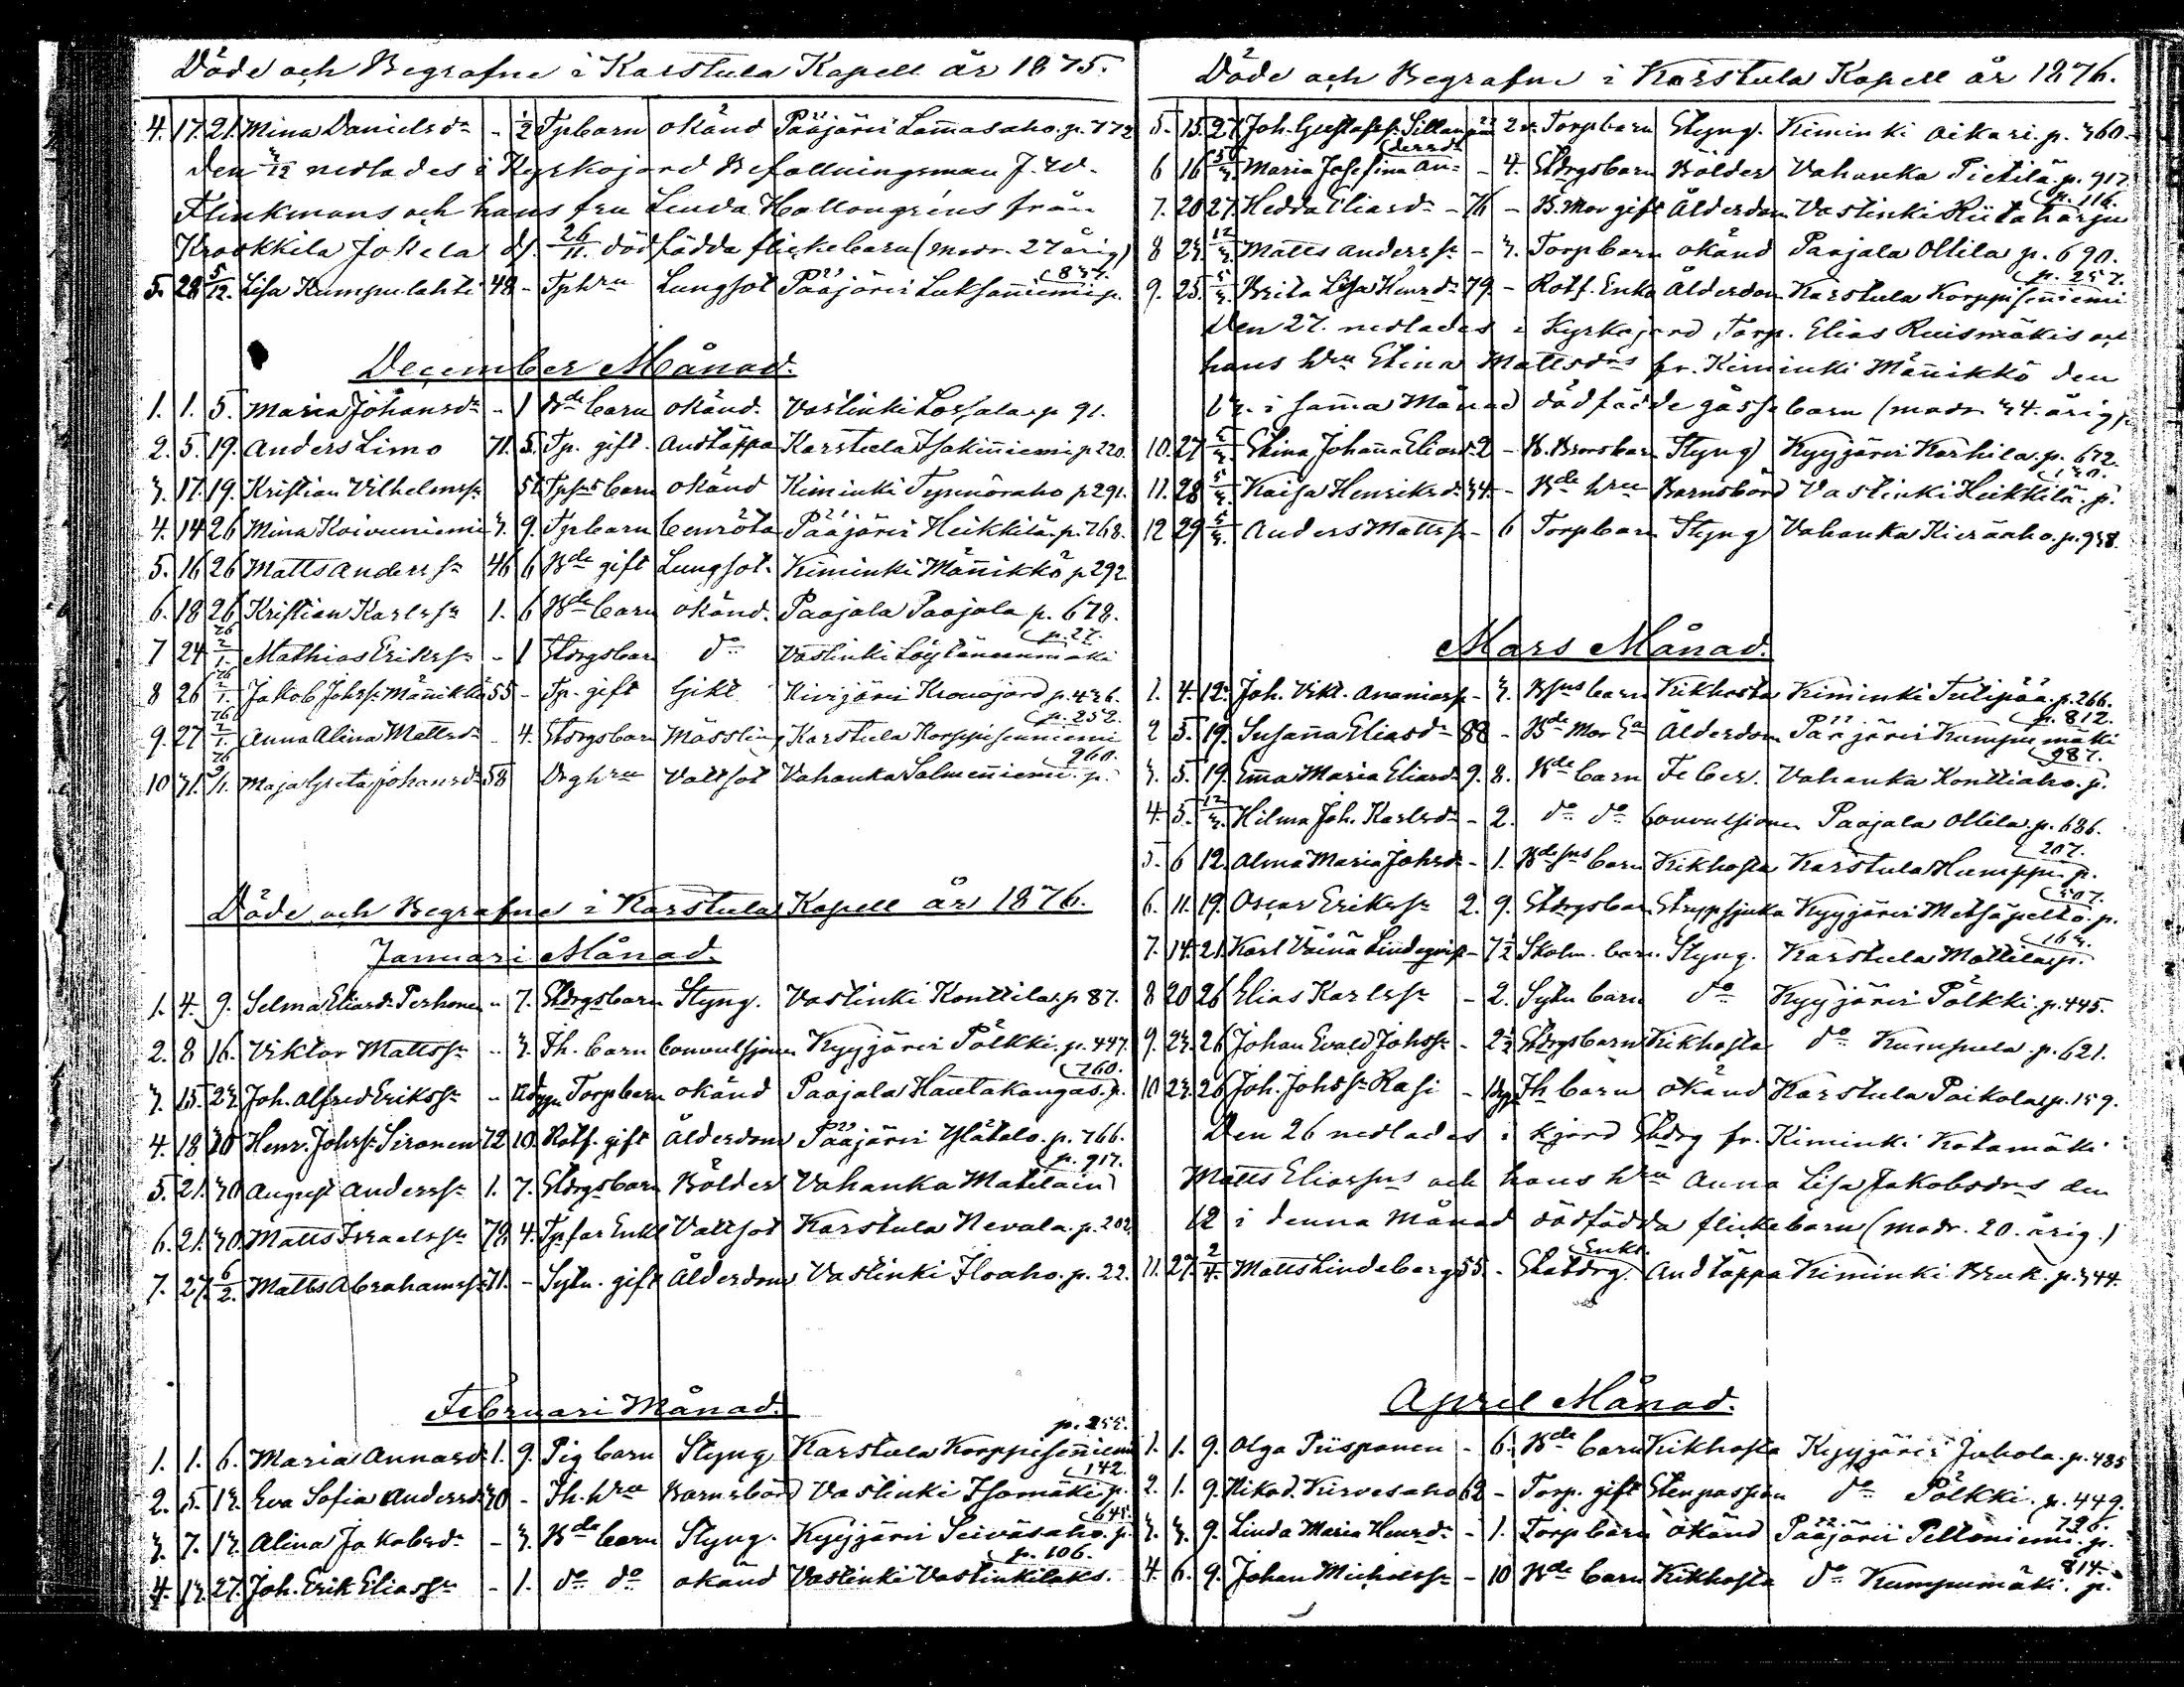 Döde och Begrafne i Karstula Kapell år 1875.
4. 17. 21. Mina Danielsdr - ½ Tpbarn okänd Pääjärvi Lamasaho. p. 772
Den 3/12 nedlades i Kyrkojord Befallningsman J. W.
Flinkmans och hans fru Linda Hallongréns från
Krookkila Jokela d. 26/11. dödfödda flickebarn (modr. 27 årig)
5. 28 5/12. Lisa Kumpulahti 48 - Tphru Lungsot Pääjärvi Luksanniemi p. 833.
December Månad.
1. 1. 5. Maria Johansdr - 1 Bde barn okänd. Vastinki Lossala. p 91.
2. 5. 19. Anders Limo 71. 5. Tp. gift. Andtäppa Karstula Isakinniemi p 220.
3. 17. 19. Kristian Vilhelmss. barn okänd Kiminki p 291.
4. 14 26 Mina Koivuniemi 3. 9. Tpbarn benröta Pääjärvi Heikkilä. p. 768.
5. 16 26 Matts Anderssn 46 6 Bde gift Lungsot. Kiminki Männikkö p 292.
6. 18 26 Kristian Karlssn 1. 6 Bde barn okänd. Paajala Paajala p. 678.
7 24 76 2/1. Mathias Erikssn - 1 Stdrgsbarn do Vastinki Löytänenmäki p. 27.
8 26 76 2/1. Jakob Johss. Männikkö 55 - Tp. gift Gikt Kivijärvi Kronojord p. 436.
9. 27 76 2/1. Anna Alina Mattsdr - 4. Stdrgsbarn Mässling Karstula Korppisenniemi p. 252.
10 31. 76 9/1. Maja Greta Johansdr 58 Drghru Vattsot Vahanka Salmenniemi. p. 960.
Döde och Begrafne i Karstula Kapell år 1876.
Januari Månad.
1. 4. 9. Selma Eliasdr Perhonen - 7. Stdrgsbarn Styng. Vastinki Konttila. p 87.
2. 8 16. Viktor Mattssn - 3. Th. barn Convulsjonen Kyyjärvi Pölkki. p. 447.
3. 15. 23. Joh. Alfred Erikssn - 12 dygn Torpbarn okänd Paajala Hautakangas. p. 760.
4. 18 30 Henr. Johss. Sironen 72 10. Rotf. gift Ålderdom Pääjärvi Ylätalo. p. 766.
5. 21. 30 August Anderssn 1. 7. Stdrgsbarn Bölder Vahanka Matilain p. 917.
6. 21. 30. Matts Israelssn 78 4. Tpfar Enkl Vattsot Karstula Nevala. p. 202.
7. 27. 6/2. Matts Abrahamss. 71. - Sytn. gift Ålderdom Vastinki Iloaho. p. 22.
Februari Månad.
1. 1. 6. Maria Annasdr 1. 9. Pig barn Styng Karstula Korppisenniemi p. 255.
2. 5. 13. Eva Sofia Andersdr 30 - Th. hru Barnsbörd Vastinki Isomäki p. 142.
3. 7. 13. Alina Jakobsdr - 3. Bde barn Styng. Kyyjärvi Seiväsaho. p. 645.
4. 13. 27. Joh. Erik Eliassn - 1. do do okänd Vastinki Vastinkilaks. p. 106.
Döde och Begrafne i Karstula Kapell år 1876.
5. 15. 27. Joh. Gustafss. Sillanpää - 2 v. Torpbarn Styng. Kiminki Aikari. p. 360.
6 16 5/3. Maria Josefina Andersdr - 4. Stdrgsbarn Bölder Vahanka Pietilä. p. 917.
7. 20 27. Hedda Eliasdr - 76 - B. Mor gift Ålderdom Vastinki Riitaharju p. 116.
8 23 12/3. Matts Anderss. - 3. Torpbarn okänd Paajala Ollila p. 690.
9. 25. 5/3. Brita Lisa Henrdr 79. - Rotf. Enka Ålderdom Karstula Korppisenniemi p. 257.
Den 27. nedlades i Kyrkojord Torp. Elias Ruismäkis och
hans hru Stina Mattsdrs fr. Kiminki Männikkö den
13. i samma Månad dödfödde gossebarn (modr 34. årig).
10. 27 5/3. Stina Johanna Eliasdr 2 - Styng Kyyjärvi Karhila. p. 672.
11. 28 5/3. Kaisa Henriksdr 34 - Bde hru Barnsbörd Vastinki Heikkilä. p. 130.
12 29 5/3. Anders Mattss. - 6 Torpbarn Styng Vahanka Kieräaho. p. 938.
Mars Månad.
1. 4. 12. Joh. Vikt. Ananiass. - 3. Bsns barn Kikhosta Kiminki Tulipää. p. 266.
2 5. 19. Susanna Eliasdr 88 - Bde Mor Ea Ålderdom Pääjärvi Kumpumäki p. 812.
3. 5. 19. Emma Maria Eliasdr 9. 8. Bde barn Feber. Vahanka Konttiaho. p. 987.
4. 5. 12/3. Hilma Joh. Karlsdr - 2. do do Convulsionen Paajala Ollila. p. 686.
5. 6 12. Alma Maria Johsdr - 1. Bdesns barn Kikhosta Karstula Humppi. p. 207.
6. 11. 19. Oscar Erikssn 2. 9. Stdrgsbarn Strypsjuka Kyyjärvi Metsäpelto. p. 507.
7. 14. 21. Karl Väinä Lindeqvist - 7½ Skolm. barn. Styng. Karstula Mattila. p. 163.
8 20 26 Elias Karlssn - 2. Sytn barn do Kyyjärvi Pölkki. p. 445.
9. 23. 26 Johan Evald Johssn - 2½ Stdrgsbarn Kikhosta do Kumpula p. 621.
10 23. 26 Joh. Johssn Rasi - Th barn okänd Karstula Paikola. p. 159.
Den 26 nedlades i kjord Stdrg fr. Kiminki Kotamäki
Matts Eliassns och hans hru Anna Lisa Jakobsdrs den
12 i denna Månad dödfödda flickebarn (modr. 20. årig.)
11. 27. 2/4. Matts Lindeberg 55 - Statdrg. Enkl. Andtäppa Kiminki Bruk. p. 344.
April Månad.
1. 1. 9. Olga Piispanen - 6. Bde barn Kikhosta Kyyjärvi Jokola. p. 485
2. 1. 9. Nikod. Kirvesaho 62 - Torp. gift Stenpassion do Pölkki. p. 449.
3. 3. 9. Linda Maria Henrdr - 1. Torpbarn okänd Pääjärvi Peltoniemi. p. 796.
4. 6. 9. Johan Michelssn - 10 Bde barn Kikhosta do Kumpumäki. p. 814.